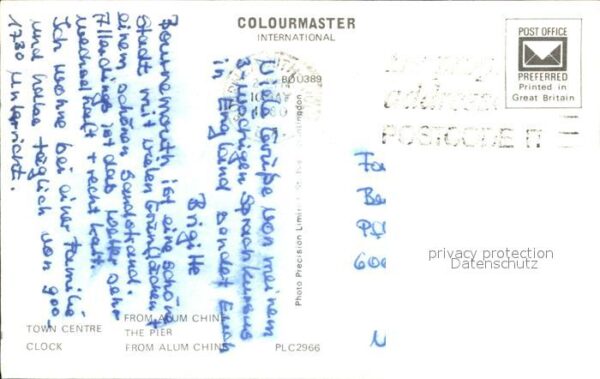 COLOURMASTER
INTERNATIONAL
POST OFFICE
PREFERRED
Printed in
Great Britain
BOU389
POSTCODE IT
Viele Grüße von meinem
3-wöchigen Sprachkursus
in England sendet Euch
Brigitte
Bournemouth ist eine schöne
Stadt mit vielen Grünflächen +
einem schönen Sandstrand.
Allerdings ist das Wetter sehr
wechselhaft + recht kalt.
Ich wohne bei einer Familie
und habe täglich von 900-
1730 Unterricht.
Photo Precision Limited
privacy protection
Datenschutz
FROM ALUM CHINE
TOWN CENTRE THE PIER
CLOCK FROM ALUM CHINE PLC2966